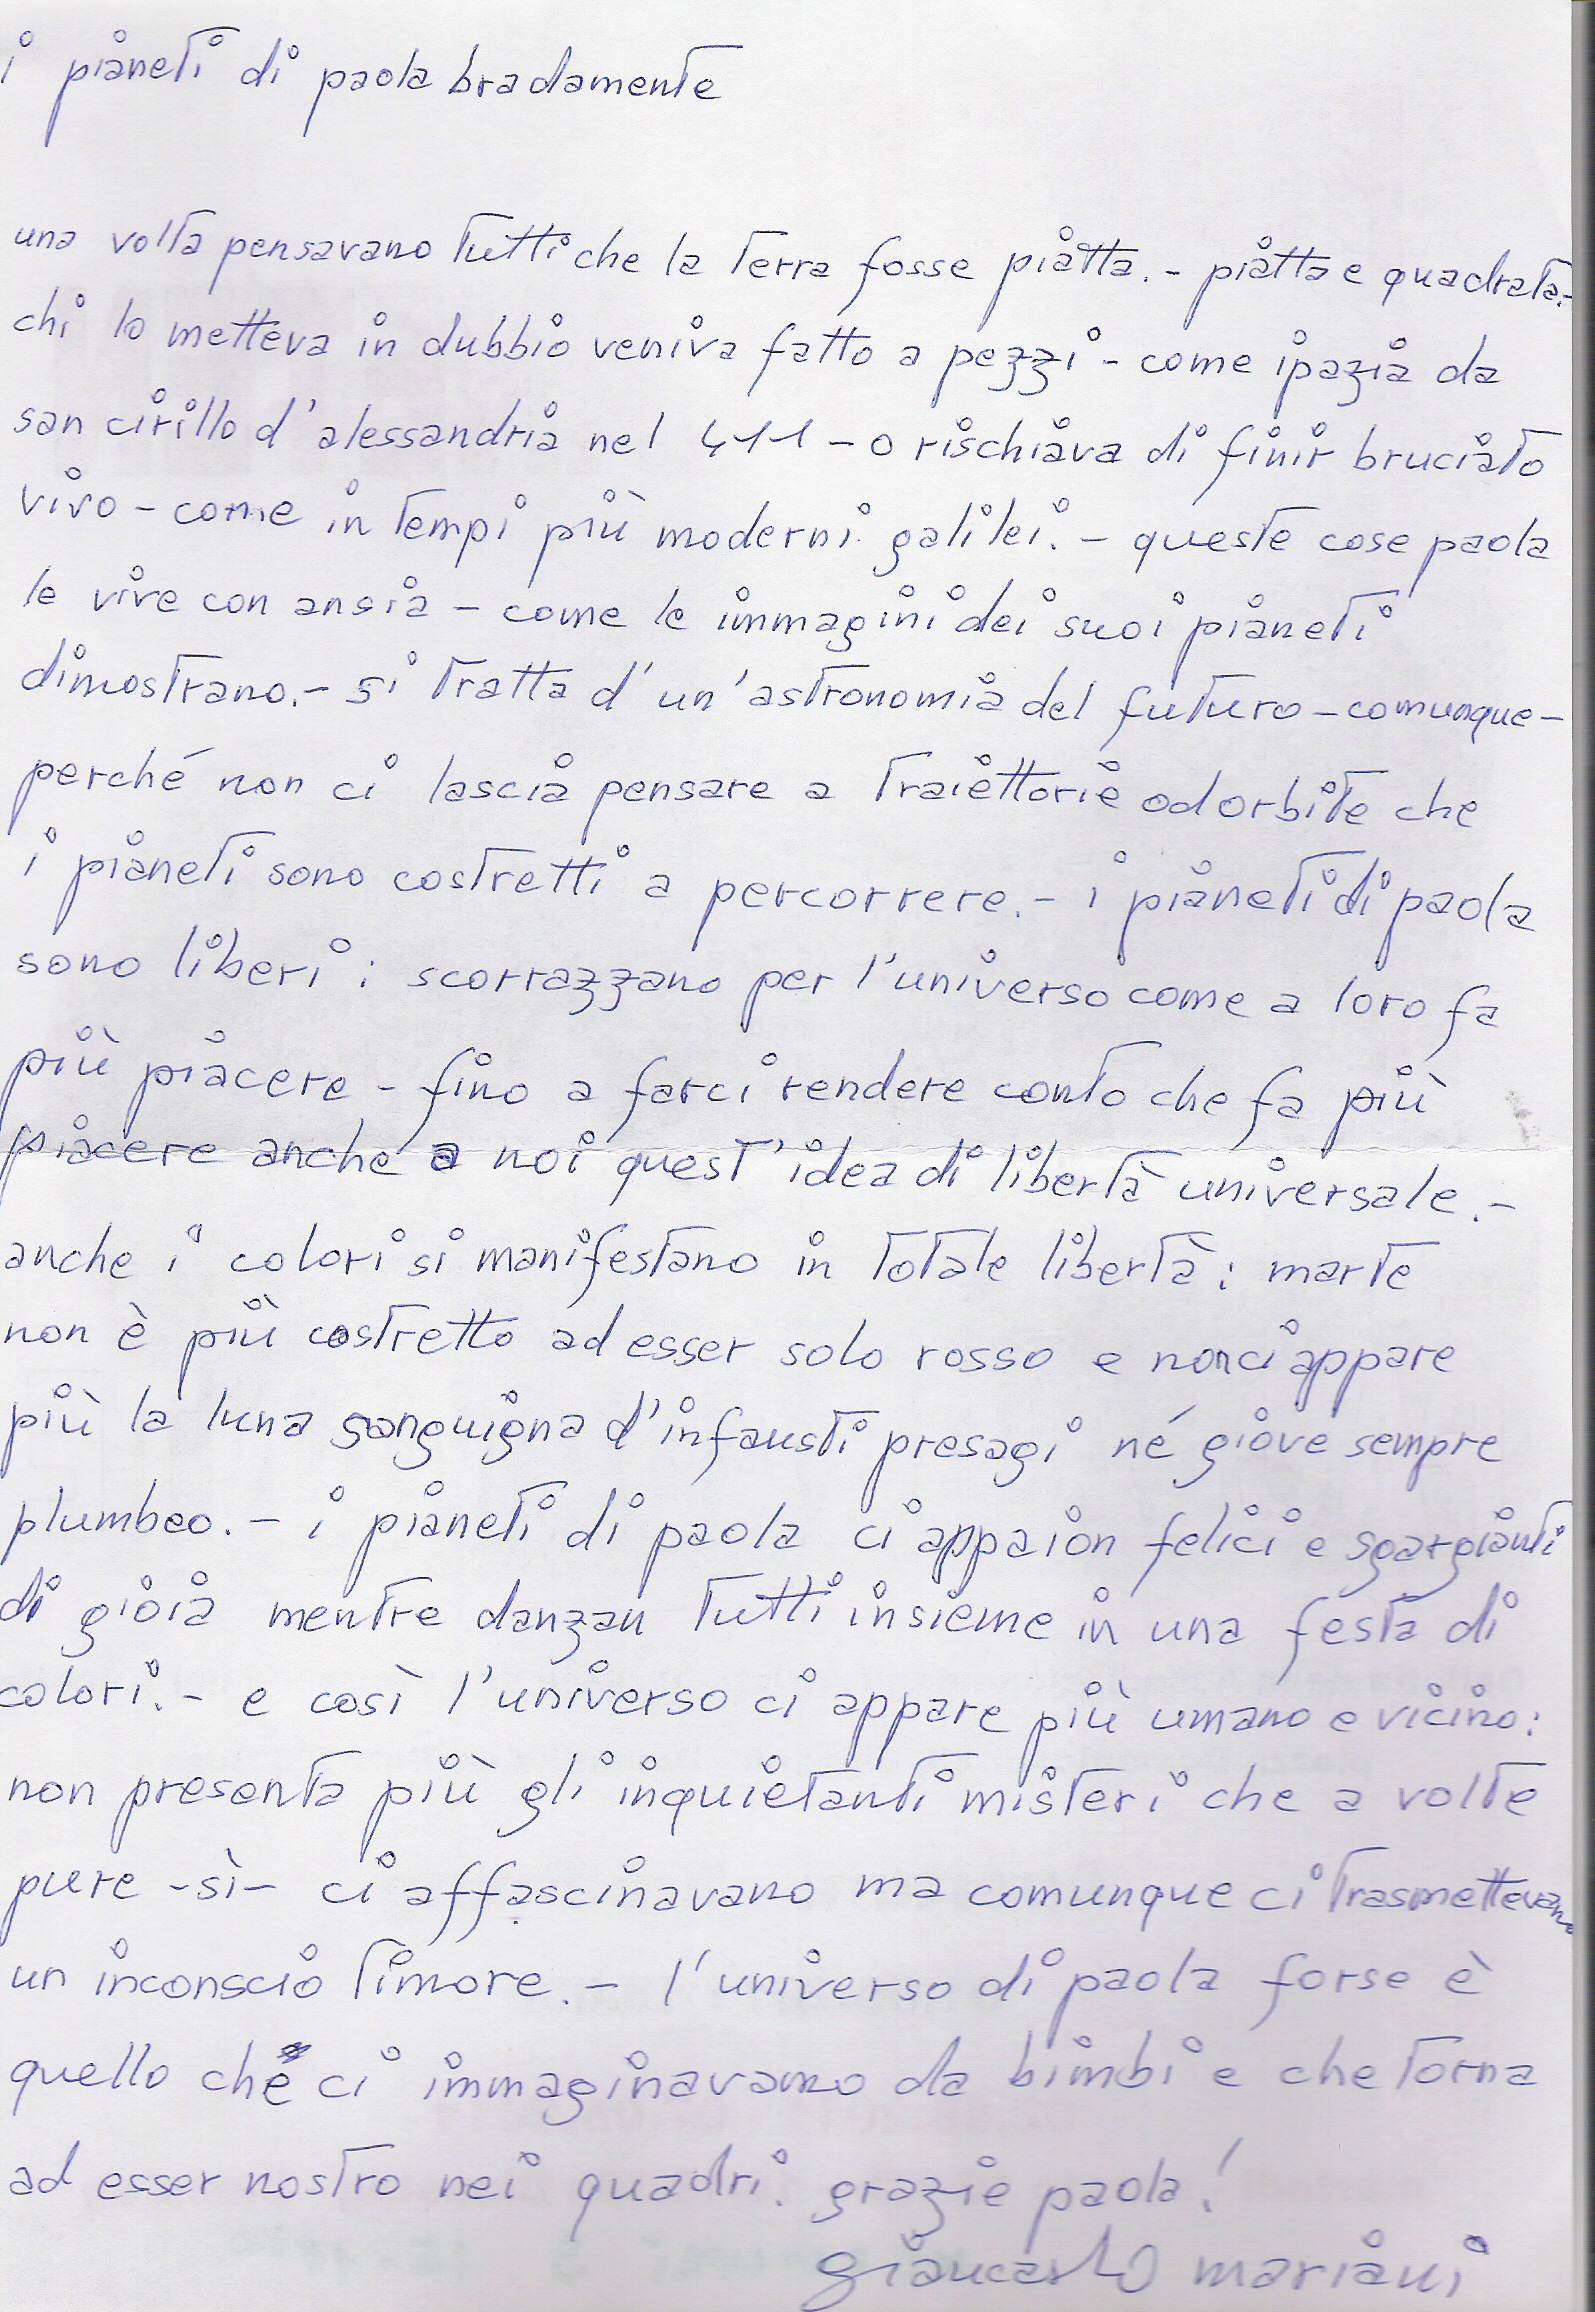 i pianeti di paola bradamente
una volta pensavano tutti che la terra fosse piatta.- piatta e quadrata:
chi lo metteva in dubbio veniva fatto a pezzi - come ipazia da
san cirillo d'alessandria nel 411 - o rischiava di finir bruciato
vivo - come in tempi più moderni galilei. - queste cose paola
le vive con ansia - come le immagini dei suoi pianeti
dimostrano.- si tratta d'un'astronomia del futuro - comunque -
perché non ci lascia pensare a traiettorie od orbite che
i pianeti sono costretti a percorrere.- i pianeti di paola
sono liberi: scorrazzano per l'universo come a loro fa
più piacere - fino a farci rendere conto che fa più
piacere anche a noi quest'idea di libertà universale.-
anche i colori si manifestano in totale libertà: marte
non è più costretto ad esser solo rosso e non ci appare
più la luna sanguigna d'infausti presagi né giove sempre
plumbeo. - i pianeti di paola ci appaion felici e sgargianti
di gioia mentre danzan tutti insieme in una festa di
colori. - e così l'universo ci appare più umano e vicino:
non presenta più gli inquietanti misteri che a volte
pure - sì - ci affascinavano ma comunque ci trasmettevano
un inconscio timore. - l'universo di paola forse è
quello che ci immaginavamo da bimbi e che torna
ad esser nostro nei quadri. grazie paola!
giancarlo mariani